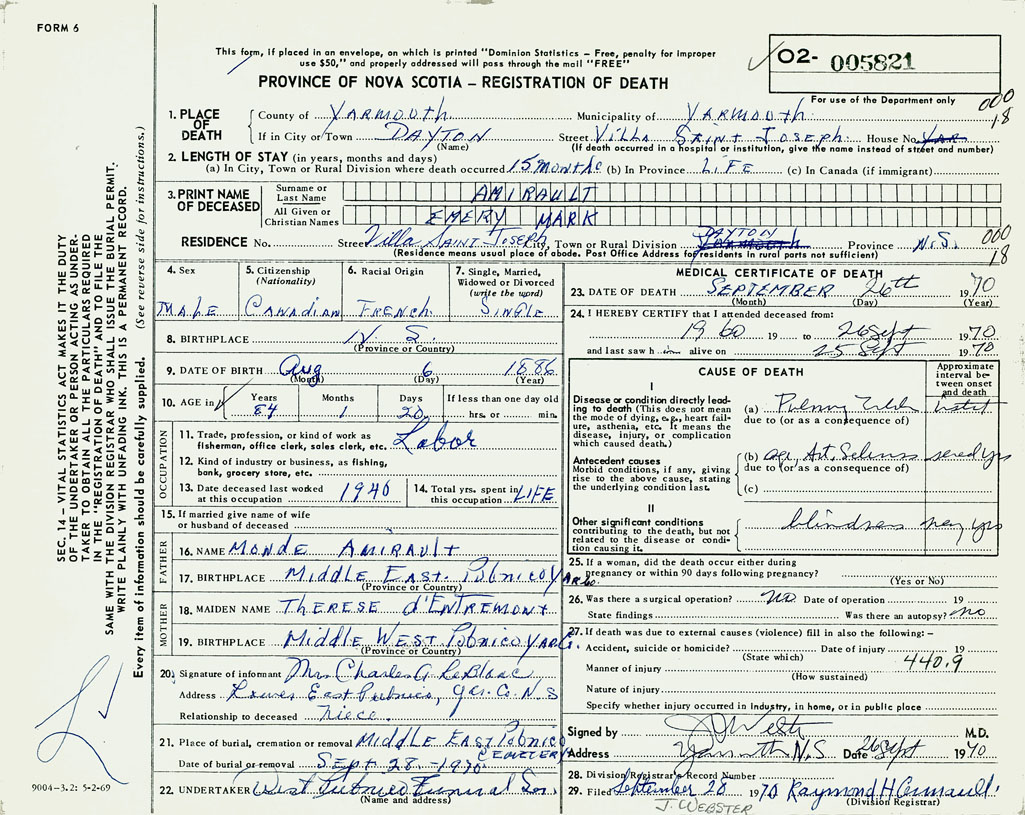 FORM 6
This form, if placed in an envelope, on which is printed "Dominion Statistics – Free, penalty for improper
use $50," and properly addressed will pass through the mail "FREE"
O2- 005821
PROVINCE OF NOVA SCOTIA – REGISTRATION OF DEATH
For use of the Department only
000
18
1. PLACE OF DEATH
County of YARMOUTH Municipality of YARMOUTH
If in City or Town DAYTON Street VILLA SAINT JOSEPH House No. YAR
(Name) (If death occurred in a hospital or institution, give the name instead of street and number)
2. LENGTH OF STAY (in years, months and days)
(a) In City, Town or Rural Division where death occurred 15 MONTHS (b) In Province LIFE (c) In Canada (if immigrant)
3. PRINT NAME OF DECEASED
Surname or Last Name AMIRAULT
All Given or Christian Names EMERY MARK
RESIDENCE No. Street Villa SAINT JOSEPH City, Town or Rural Division DAYTON Yarmouth Province N.S.
000
18
(Residence means usual place of abode. Post Office Address for residents in rural parts not sufficient)
4. Sex
MALE
5. Citizenship
(Nationality)
CANADIAN
6. Racial Origin
FRENCH
7. Single, Married,
Widowed or Divorced
(write the word)
SINGLE
8. BIRTHPLACE N. S.
(Province or Country)
9. DATE OF BIRTH Aug 6 1886
(Month) (Day) (Year)
10. AGE in
Years Months Days If less than one day old
84 1 20 hrs. or min.
OCCUPATION
11. Trade, profession, or kind of work as
fisherman, office clerk, sales clerk, etc. Labor
12. Kind of industry or business, as fishing,
bank, grocery store, etc.
13. Date deceased last worked
at this occupation 1940
14. Total yrs. spent in
this occupation LIFE
15. If married give name of wife
or husband of deceased
FATHER
16. NAME MONDE AMIRAULT
17. BIRTHPLACE MIDDLE EAST PUBNICO YARCO.
(Province or Country)
MOTHER
18. MAIDEN NAME THERESE d'ENTREMONT
19. BIRTHPLACE MIDDLE WEST PUBNICO YARCO.
(Province or Country)
20. Signature of informant Mrs Charles A. LeBlanc
Address Lower East Pubnico, Yar. Co. N.S
Relationship to deceased Niece.
21. Place of burial, cremation or removal MIDDLE EAST PUBNICO
CEMETERY
Date of burial or removal SEPT 28 - 1970
22. UNDERTAKER West Pubnico Funeral Ser.
(Name and address)
MEDICAL CERTIFICATE OF DEATH
23. DATE OF DEATH SEPTEMBER 26th 1970
(Month) (Day) (Year)
24. I HEREBY CERTIFY that I attended deceased from:
1960 19 to 26 Sept 1970
and last saw h im alive on 25 Sept 1970
CAUSE OF DEATH
Approximate
interval be-
tween onset
and death
I
Disease or condition directly lead-
ing to death (This does not mean
the mode of dying, e.g., heart fail-
ure, asthenia, etc. It means the
disease, injury, or complication
which caused death.)
(a)
due to (or as a consequence of)
Antecedent causes
Morbid conditions, if any, giving
rise to the above cause, stating
the underlying condition last.
(b) Art. yrs
due to (or as a consequence of)
(c)
II
Other significant conditions
contributing to the death, but not
related to the disease or condi-
tion causing it.
blindness many yrs
25. If a woman, did the death occur either during
pregnancy or within 90 days following pregnancy?
(Yes or No)
26. Was there a surgical operation? no Date of operation 19
State findings Was there an autopsy? no
27. If death was due to external causes (violence) fill in also the following: –
Accident, suicide or homicide? Date of injury 19
(State which) 440.9
Manner of injury
(How sustained)
Nature of injury
Specify whether injury occurred in industry, in home, or in public place
Signed by M.D.
Address Yarmouth N.S Date 26 Sept 1970
28. Division Registrar's Record Number
29. Filed September 28 1970 Raymond H Amirault
(Division Registrar)
J. WEBSTER
SEC. 14 – VITAL STATISTICS ACT MAKES IT THE DUTY
OF THE UNDERTAKER OR PERSON ACTING AS UNDER-
TAKER TO OBTAIN ALL THE PARTICULARS REQUIRED
IN THE "REGISTRATION OF DEATH" AND TO FILE THE
SAME WITH THE DIVISION REGISTRAR WHO SHALL ISSUE THE BURIAL PERMIT.
WRITE PLAINLY WITH UNFADING INK. THIS IS A PERMANENT RECORD.
Every item of information should be carefully supplied. (See reverse side for instructions.)
9004-3.2: 5-2-69